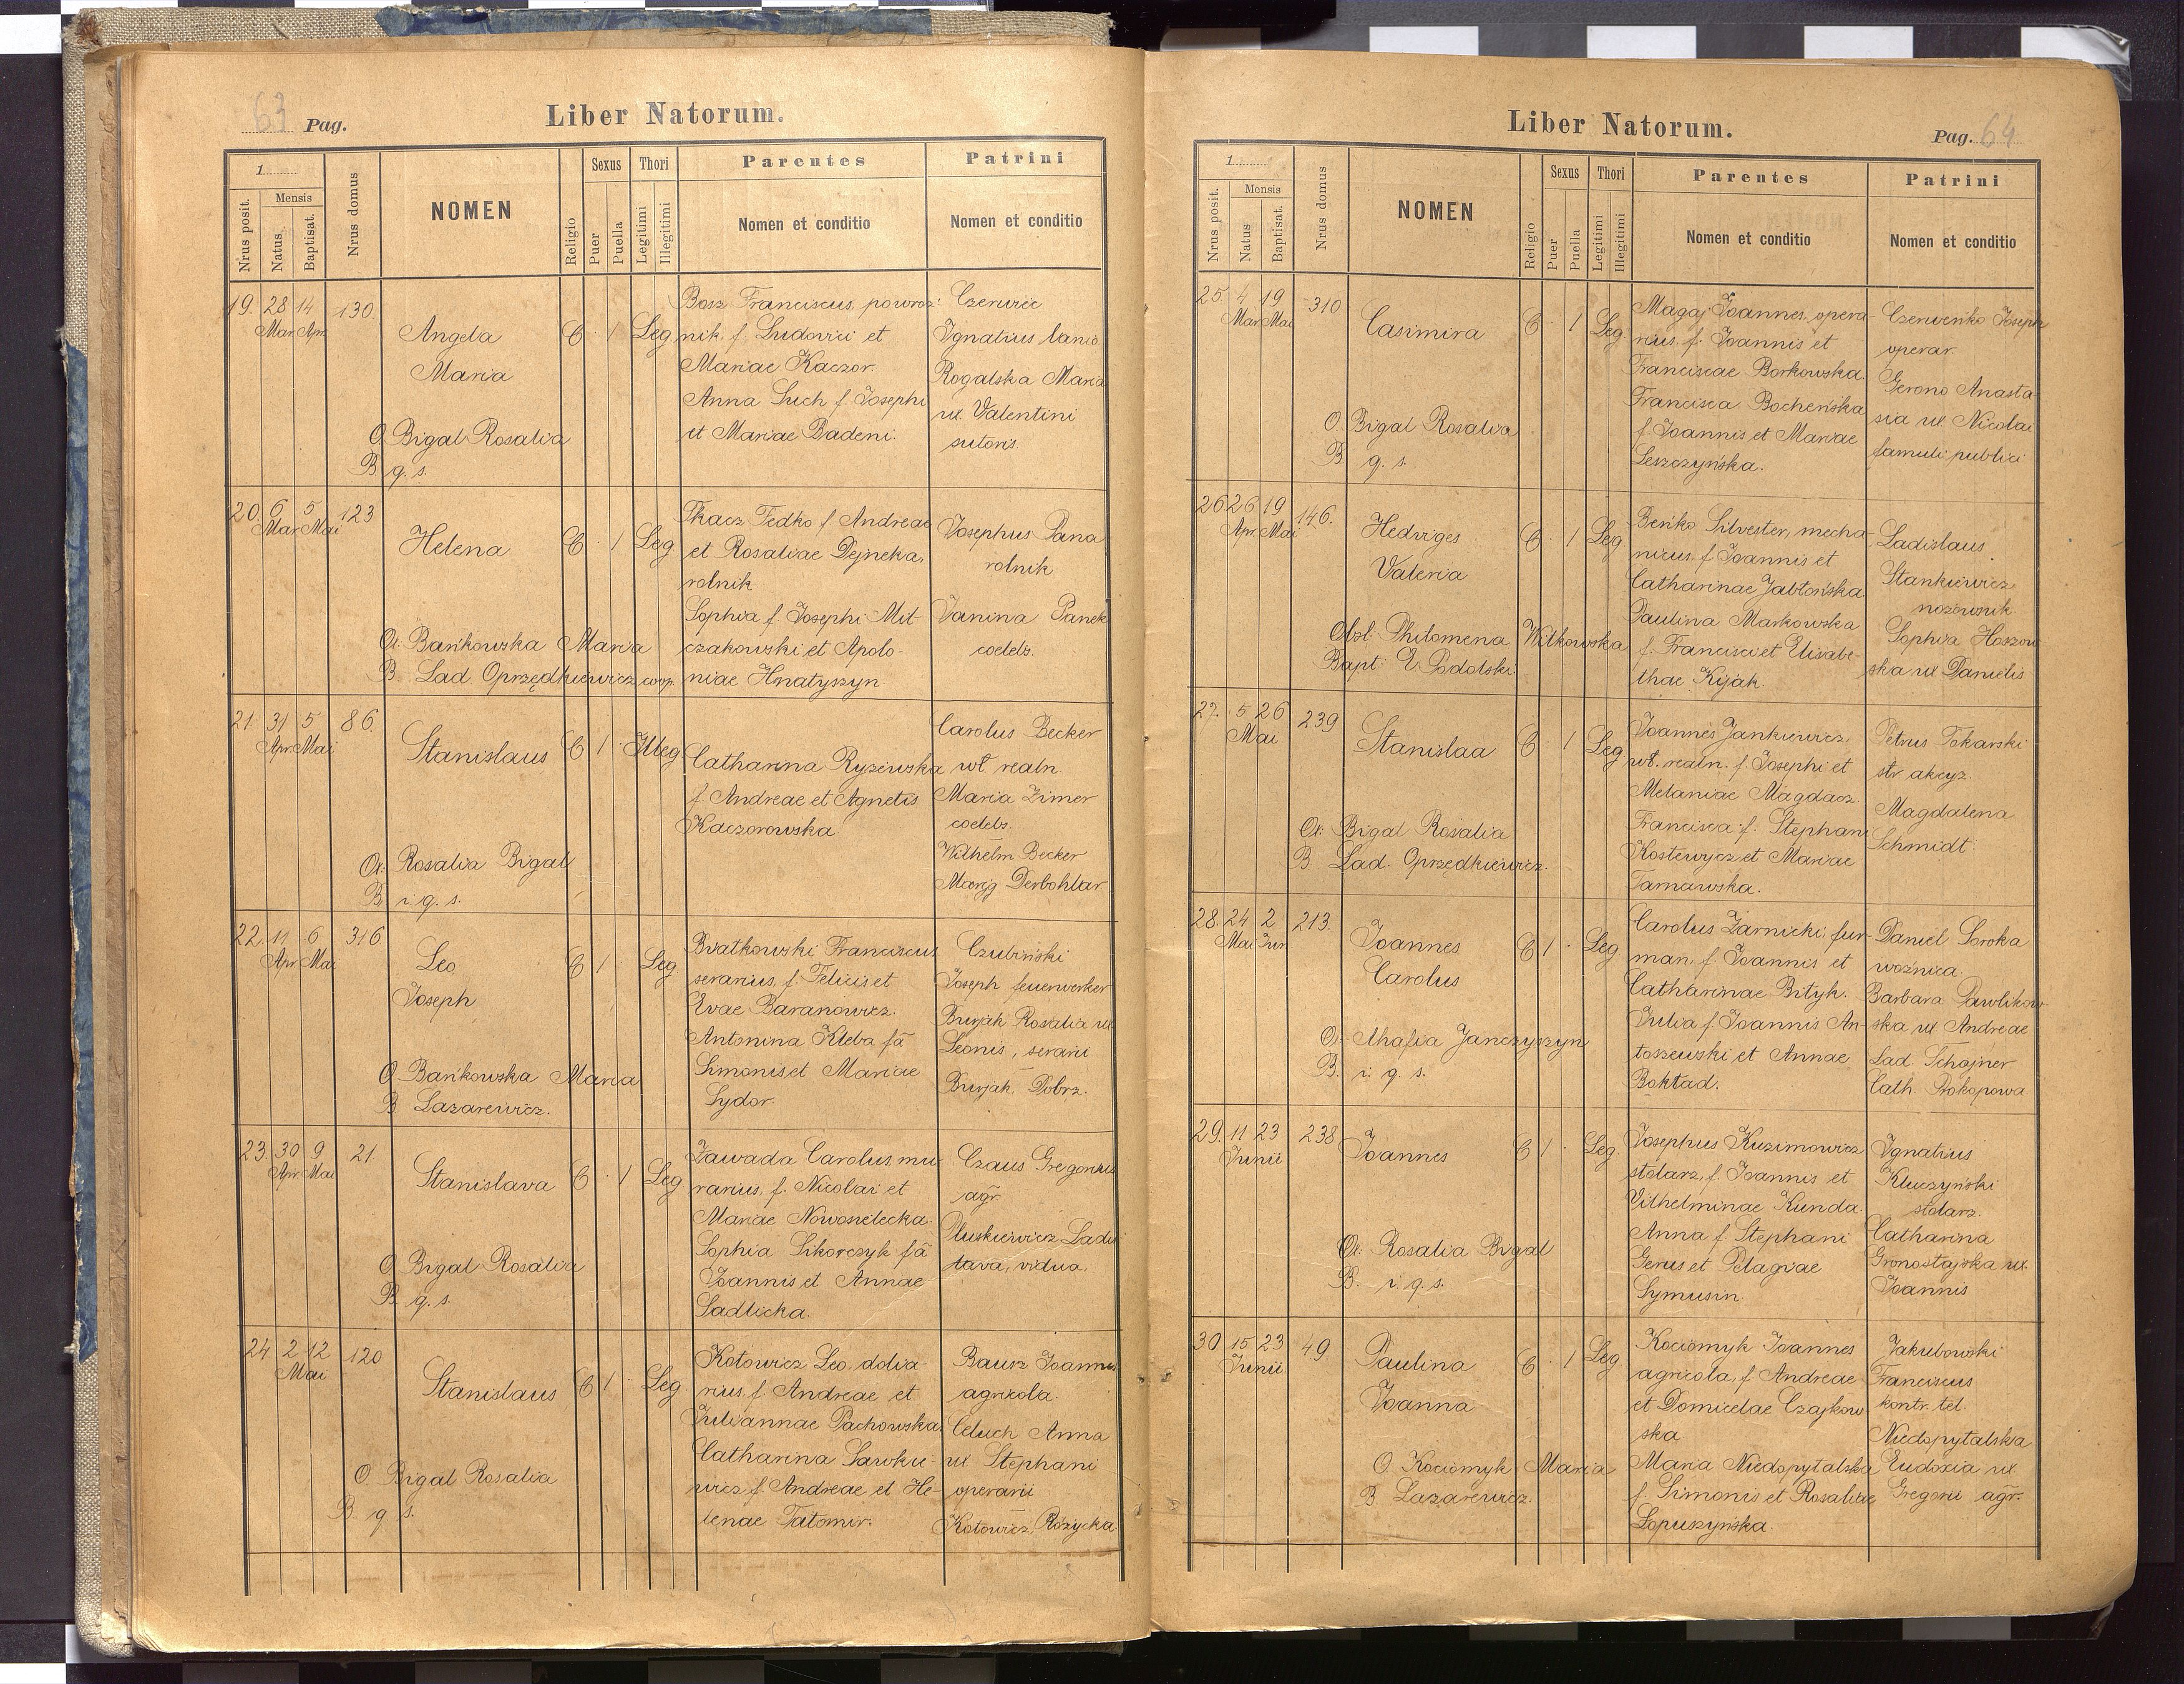 63 Pag.
Liber Natorum.
1
Nrus posit.
Mensis
Natus
Baptisat.
Nrus domus
NOMEN
Religio
Sexus
Puer
Puella
Thori
Legitimi
Illegitimi
Parentes
Nomen et conditio
Patrini
Nomen et conditio
19. 28 14 130.
Mar. Apr.
Angela
Maria
C · 1 Leg.
O. Bigal Rosalia
B. q. s.
Bosz Franciscus, powroź-
nik, f. Ludovici et
Mariae Kaczor.
Anna Such f. Josephi
et Mariae Badeni.
Czerwiec
Ignatius lanio.
Rogalska Maria
ux. Valentini
sutoris.
20. 6 5 123
Mar. Mai
Helena
C · 1 Leg
O: Bańkowska Maria
B. Lad. Oprzędkiewicz coop.
Tkacz Fedko f. Andreae
et Rosaliae Dejneka,
rolnik
Sophia f. Josephi Mit-
czakowski et Apolo-
niae Hnatyszyn
Josephus Pana
rolnik
Janina Panek
coelebs.
21. 31 5 86.
Apr. Mai
Stanislaus
C 1 · Illeg
O: Rosalia Bigal
B. i. q. s.
Catharina Ryżewska
f. Andreae et Agnetis
Kaczorowska.
Carolus Becker
wł realn.
Maria Zimer
coelebs.
Wilhelm Becker
Marij Derbohlav
22. 11 6 316
Apr. Mai
Leo
Joseph
C 1 · Leg.
O. Bańkowska Maria
B. Lazarewicz.
Bratkowski Franciscus
serarius, f. Felicis et
Evae Baranowicz.
Antonina Kleba fa
Simonis et Mariae
Sydor.
Czubiński
Joseph feuerwerker
Burjak Rosalia ux
Leonis, serarii
Burjak, Dobrz.
23. 30 9 21.
Apr. Mai
Stanislava
C · 1 Leg
O. Bigal Rosalia
B. q. s.
Zawada Carolus, mu-
rarius, f. Nicolai et
Mariae Nowosielecka.
Sophia Sikorczyk fa
Joannis et Annae
Sadlicka.
Czaus Gregorius
agr.
Pluskiewicz Ladis
lava, vidua.
24 2 12 120
Mai
Stanislaus
C 1 · Leg
O. Bigal Rosalia
B. q. s.
Kotowicz Leo, dolia-
rius, f. Andreae et
Juliannae Pachowska.
Catharina Sawkie-
wicz f. Andreae et He-
lenae Tatomir.
Bausz Joannes
agricola.
Celuch Anna
ux Stephani
operarii
Kotowicz, Rożycka.
Liber Natorum.
Pag. 64
1
Nrus posit.
Mensis
Natus
Baptisat.
Nrus domus
NOMEN
Religio
Sexus
Puer
Puella
Thori
Legitimi
Illegitimi
Parentes
Nomen et conditio
Patrini
Nomen et conditio
25 4 19 310
Mar. Mai
Casimira
C · 1 Leg
O. Bigal Rosalia
B. q. s.
Magaj Joannes, opera-
rius, f. Joannis et
Franciscae Borkowska.
Francisca Bocheńska
f. Joannis et Mariae
Leszczyńska.
Czerwenko Joseph
operar.
Gerono Anasta
sia ux. Nicolai
famuli publici
26 26 19 146.
Apr. Mai
Hedviges
Valeria
C · 1 Leg
Obst: Philomena Witkowska
Bapt: E. Podolski.
Beńko Silvester, mecha-
nicus, f. Joannis et
Catharinae Jabłońska.
Paulina Markowska
f. Francisci et Elisabe-
thae Kijak.
Ladislaus
Stankiewicz
nożownik.
Sophia Hoszow
ska ux Danielis
27. 5 26 239
Mai
Stanislaa
C · 1 Leg
O: Bigal Rosalia
B. Lad. Oprzędkiewicz.
Joannes Jankiewicz,
wł. realn. f. Josephi et
Melaniae Magdacz.
Francisca f. Stephani
Kostewycz et Mariae
Tarnawska.
Petrus Tokarski
str. akcyz.
Magdalena
Schmidt.
28. 24 2 213.
Mai Jun.
Joannes
Carolus
C 1 · Leg
O: Ahafia Janczyszyn
B. i. q. s.
Carolus Żarnicki, fur-
man, f. Joannis et
Catharinae Bityk.
Julia f. Joannis An-
toszewski et Annae
Boktad.
Daniel Soroka
woźnica.
Barbara Pawlikow
ska ux Andreae
Lad. Schajner
Cath. Prokopowa
29. 11 23 238
Junii
Joannes
C 1 · Leg.
O: Rosalia Bigal
B. i. q. s.
Josephus Kuzimowicz
stolarz, f. Joannis et
Vilhelminae Kunda.
Anna f. Stephani
Gerus et Pelagiae
Symusin.
Ignatius
Kluczyński
stolarz.
Catharina
Gronostajska ux.
Joannis
30. 15 23 49.
Junii
Paulina
Joanna
C · 1 Leg
O. Kociomyk Maria
B. Lazarewicz.
Kociomyk Joannes
agricola, f. Andreae
et Domicelae Czajkow
ska
Maria Niedopytalska
f. Simonis et Rosaliae
Łopuszyńska.
Jakubowski
Franciscus
kontr. tel.
Niedopytalska
Eudoxia ux.
Gregorii agr.